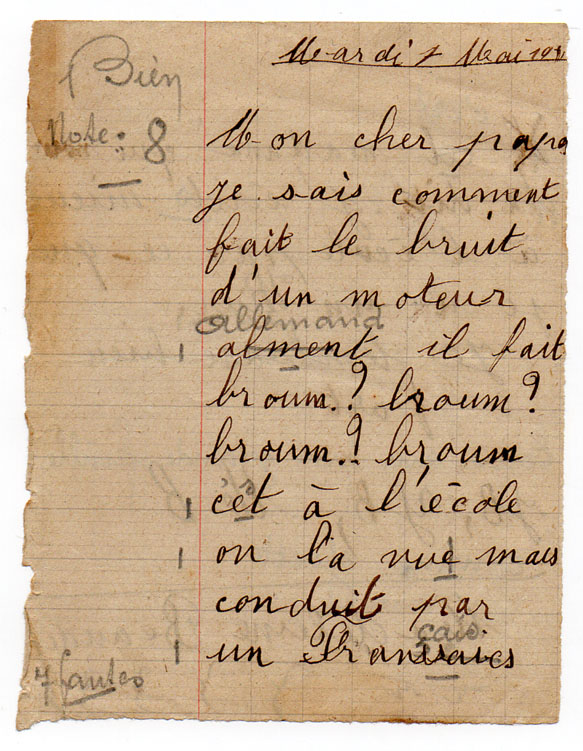 Bien
Note: 8
Mardi 1 Mai
Mon cher papa
je sais comment
fait le bruit
d'un moteur
Allemand
alment il fait
broum? broum?
broum? broum
cet à l'école
on l'a vue mais
conduit par
çais
un
7 fautes